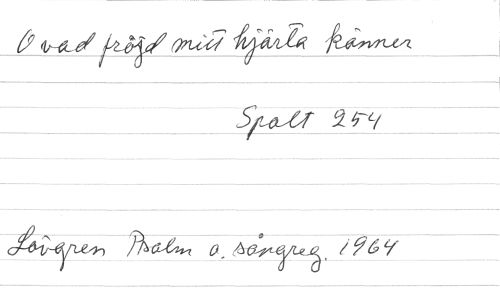 O vad fröjd mitt hjärta känner
Spalt 254
Lövgren Psalm o. sångreg. 1964